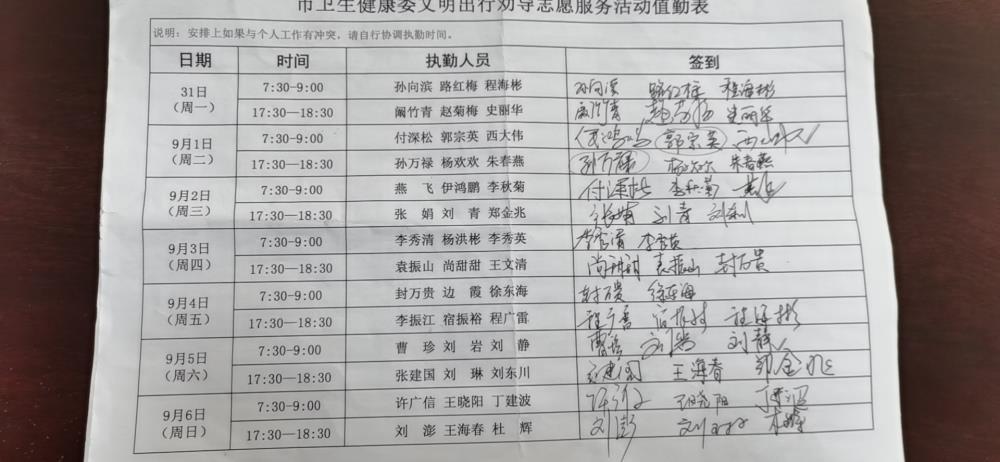 市卫生健康委文明出行劝导志愿服务活动值勤表
说明：安排上如果与个人工作有冲突，请自行协调执勤时间。
日期 时间 执勤人员 签到
31日（周一） 7:30-9:00 孙向滨 路红梅 程海彬 孙向滨 路红梅 程海彬
17:30—18:30 阚竹青 赵菊梅 史丽华 史丽华
9月1日（周二） 7:30-9:00 付深松 郭宗英 西大伟 郭宗英
17:30—18:30 孙万禄 杨欢欢 朱春燕 孙万禄 杨欢欢 朱春燕
9月2日（周三） 7:30-9:00 燕 飞 伊鸿鹏 李秋菊 付深松 李秋菊 燕飞
17:30—18:30 张 娟 刘 青 郑金兆 张娟 刘青
9月3日（周四） 7:30-9:00 李秀清 杨洪彬 李秀英 李秀清 李秀英
17:30—18:30 袁振山 尚甜甜 王文清 尚甜甜 袁振山 封万贵
9月4日（周五） 7:30-9:00 封万贵 边 霞 徐东海 封万贵 徐东海
17:30—18:30 李振江 宿振裕 程广雷 程海彬
9月5日（周六） 7:30-9:00 曹 珍 刘 岩 刘 静 曹珍 刘岩 刘静
17:30—18:30 张建国 刘 琳 刘东川 张建国 王海春 郑金兆
9月6日（周日） 7:30-9:00 许广信 王晓阳 丁建波 王晓阳
17:30—18:30 刘 澎 王海春 杜 辉 刘澎